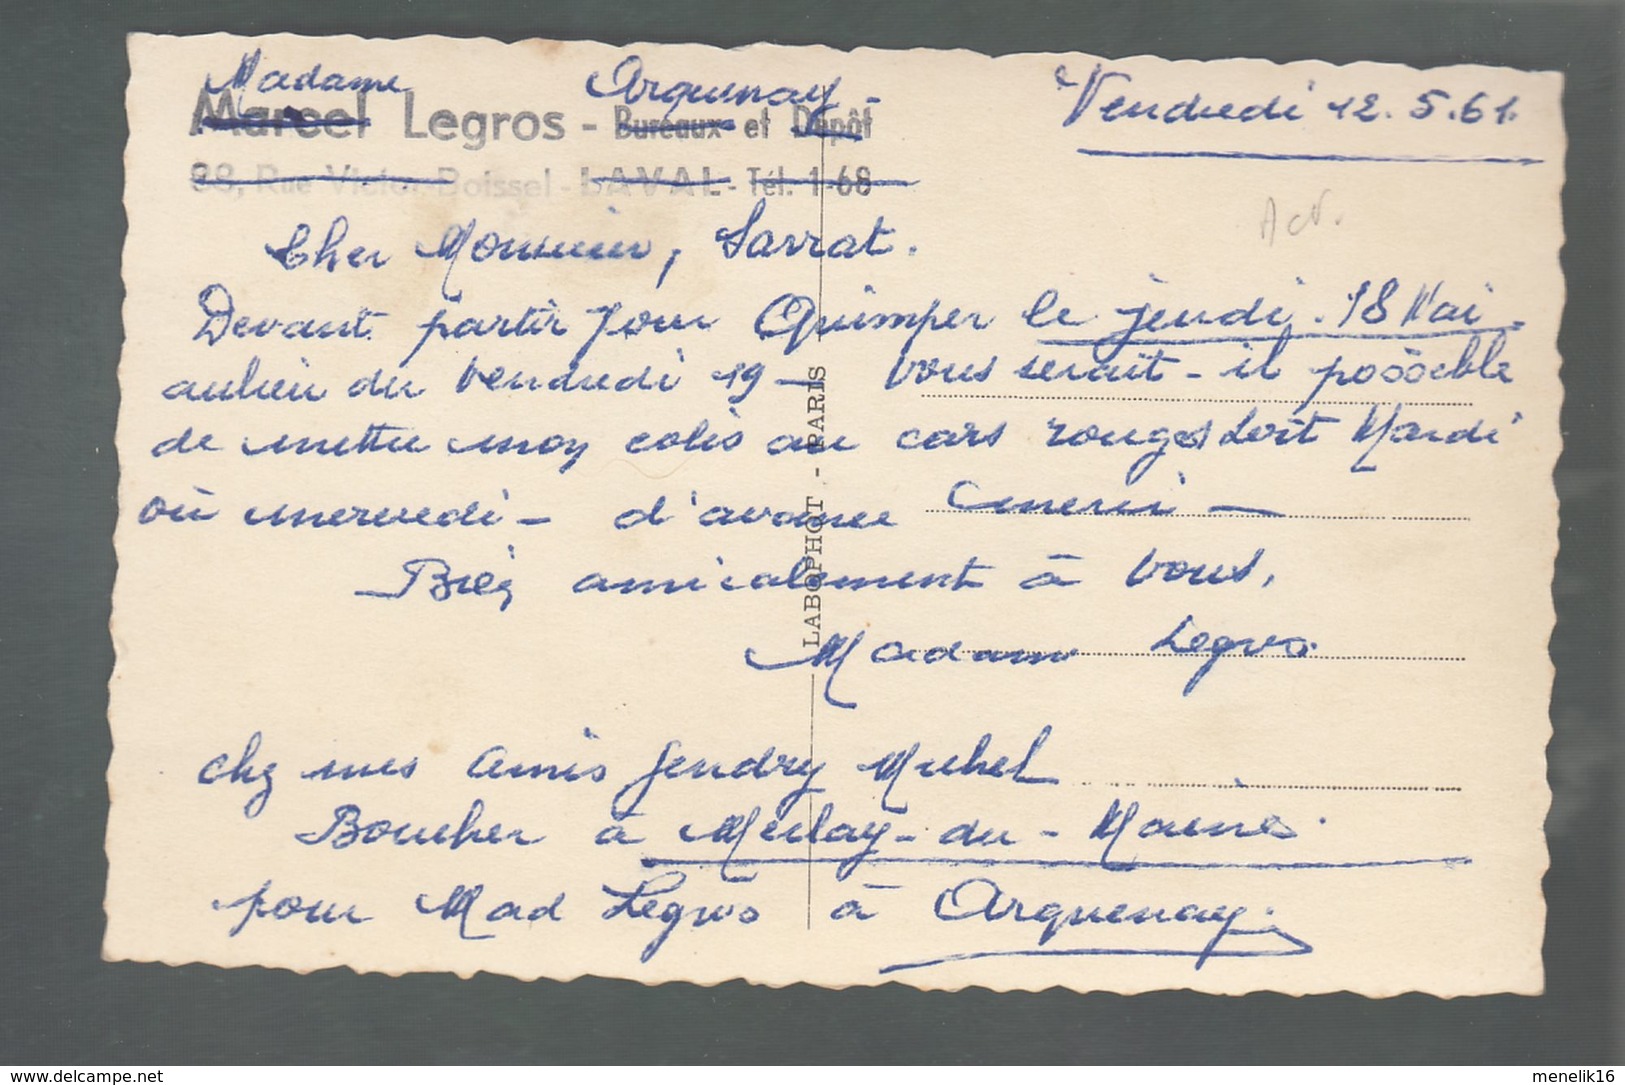 Madame Arquenay
Marcel Legros - Bureaux et Dépôt
88, Rue Victor-Boissel - LAVAL - Tél. 1-68
Vendredi 12.5.61.
Act.
Cher Monsieur, Sarrat.
Devant partir pour Quimper le jeudi. 18 Mai
aulieu du Vendredi 19 - Vous serait-il possible
de mettre mon colis au cars rouges soit Mardi
où mercredi - d'avance merci -
Bien amicalement à Vous,
Madame Legros.
chez mes amis Gendry Michel
Boucher à Meslay-du-Maine.
pour Mad Legros à Arquenay.
LABOPHOT - PARIS
delcampe.net
menelik16